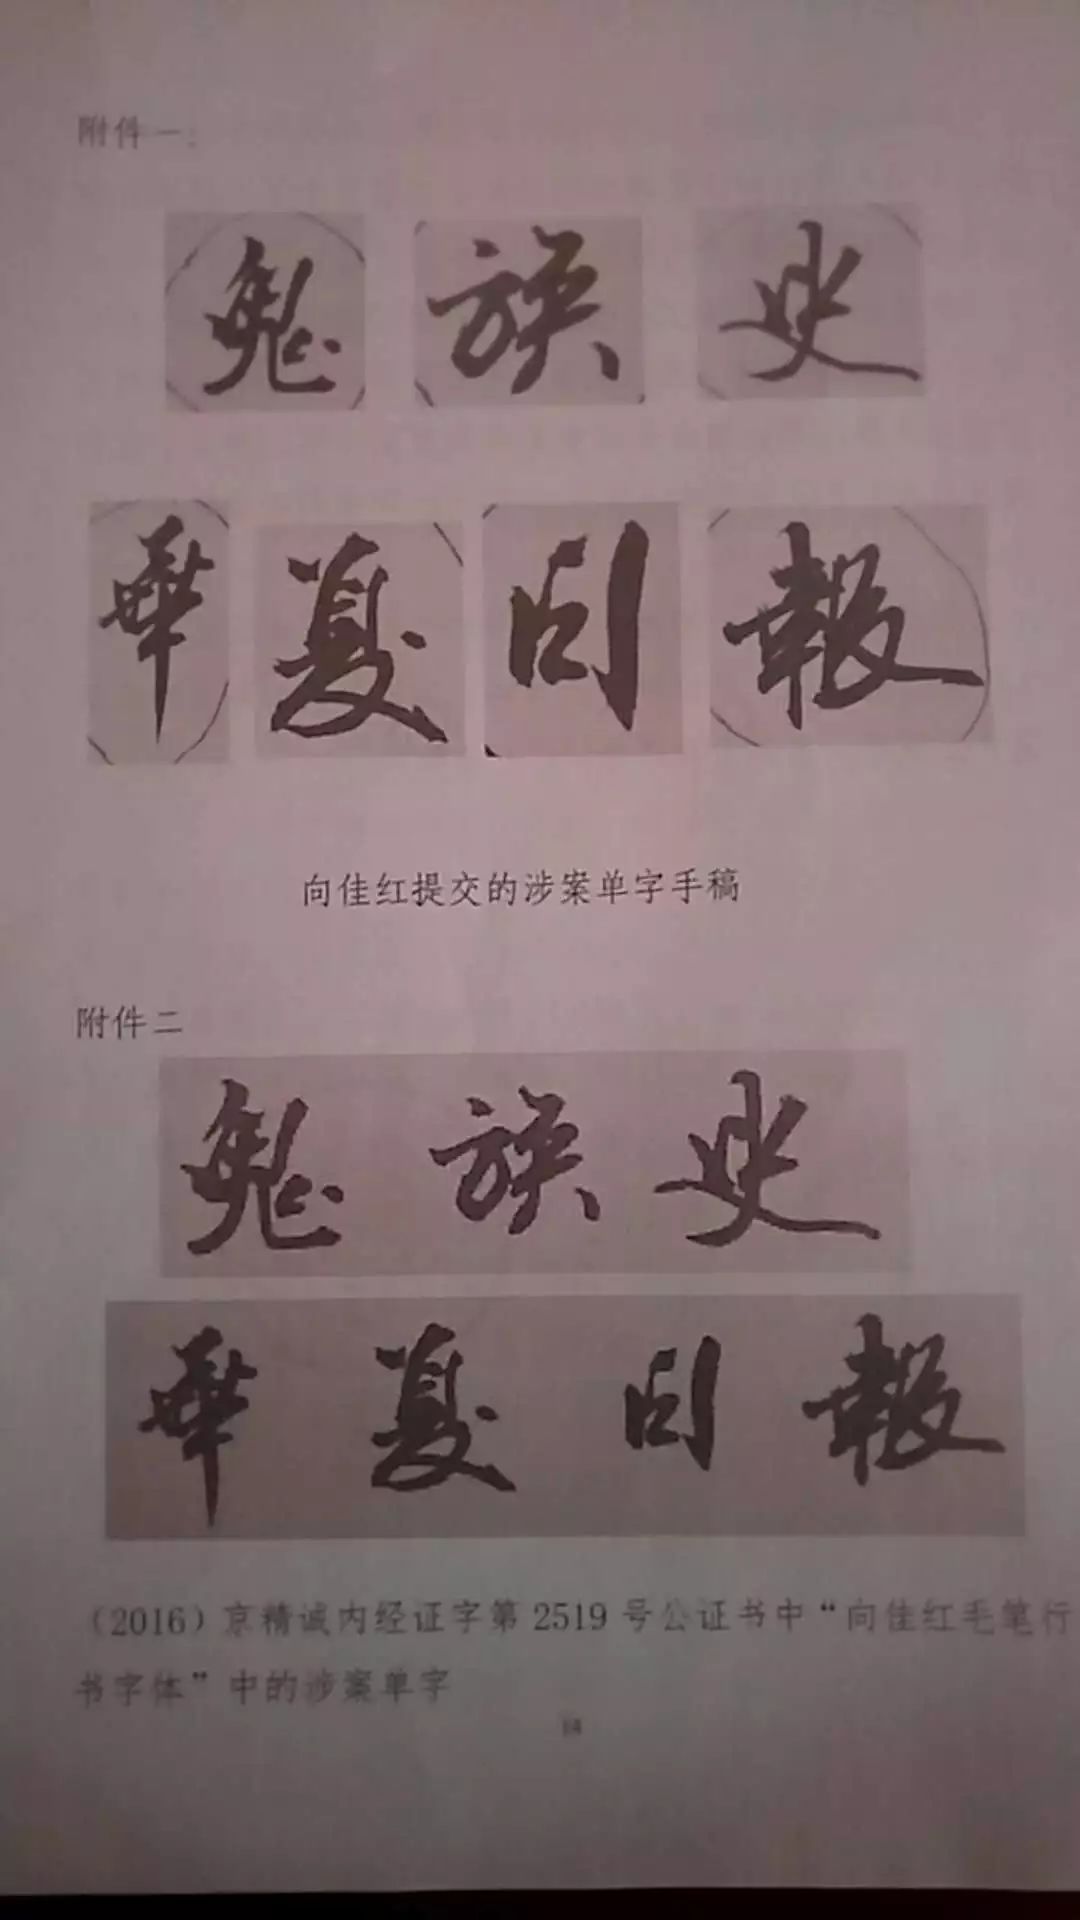 附件一:
鬼 族 史
華 夏 日 報
向佳红提交的涉案单字手稿
附件二
鬼 族 史
華 夏 日 報
(2016)京精诚内经证字第 2519 号公证书中“向佳红毛笔行
书字体”中的涉案单字